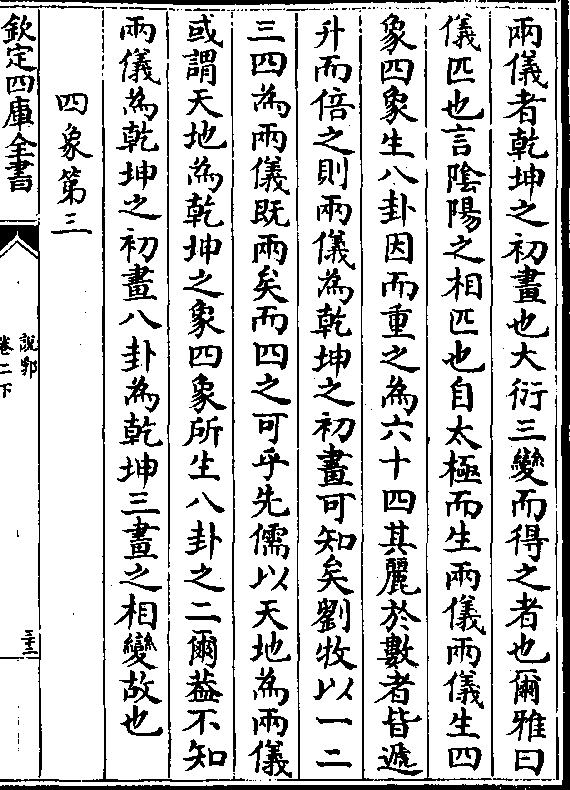 兩儀者乾坤之初畫也大衍三變而得之者也爾雅曰
儀匹也言隂陽之相匹也自太極而生兩儀兩儀生四
象四象生八卦因而重之為六十四其麗於數者皆遞
升而倍之則兩儀為乾坤之初畫可知矣劉牧以一二
三四為兩儀既兩矣而四之可乎先儒以天地為兩儀
或謂天地為乾坤之象四象所生八卦之二爾葢不知
兩儀為乾坤之初畫八卦為乾坤三畫之相變故也
四象第三
欽定四庫全書
說郛
卷二下